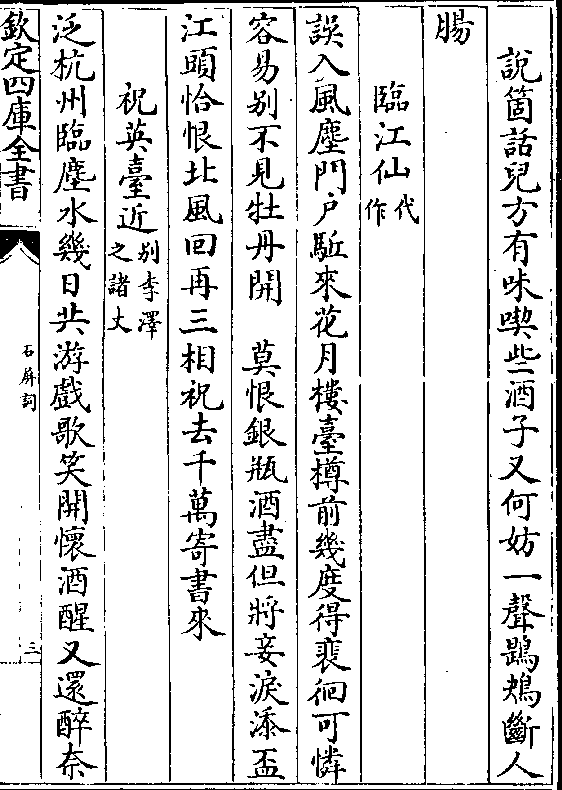 說箇話兒方有味喫些酒子又何妨一聲鶗鴂斷人
腸
臨江仙代作
誤入風塵門戶驅來花月樓臺樽前幾度得裵徊可憐
容易别不見牡丹開　莫恨銀瓶酒盡但將妾淚添盃
江頭恰恨北風回再三相祝去千萬寄書來
祝英臺近别李擇之諸丈
泛杭州臨塵水幾日共游戲歌笑開懷酒醒又還醉奈
欽定四庫全書
石屏詞
三